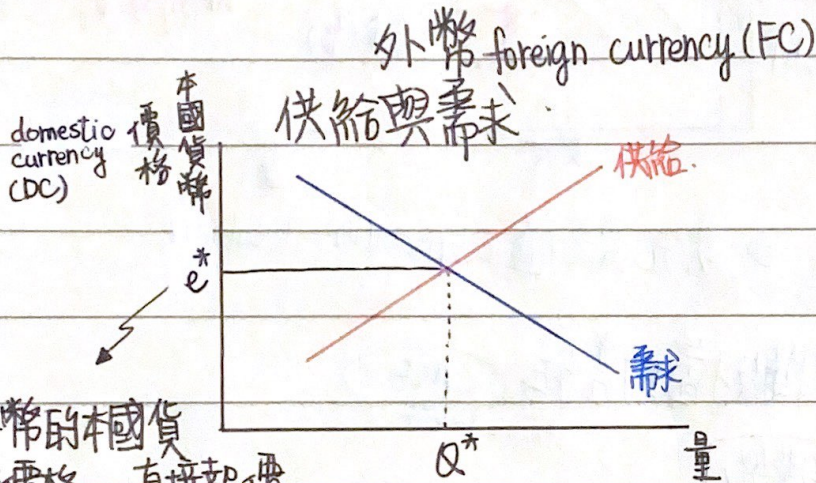 外幣 foreign currency (FC)
供給與需求
domestic
currency
(DC)
本國貨幣
價格
供給
e*
需求
幣的本國貨
Q*
量